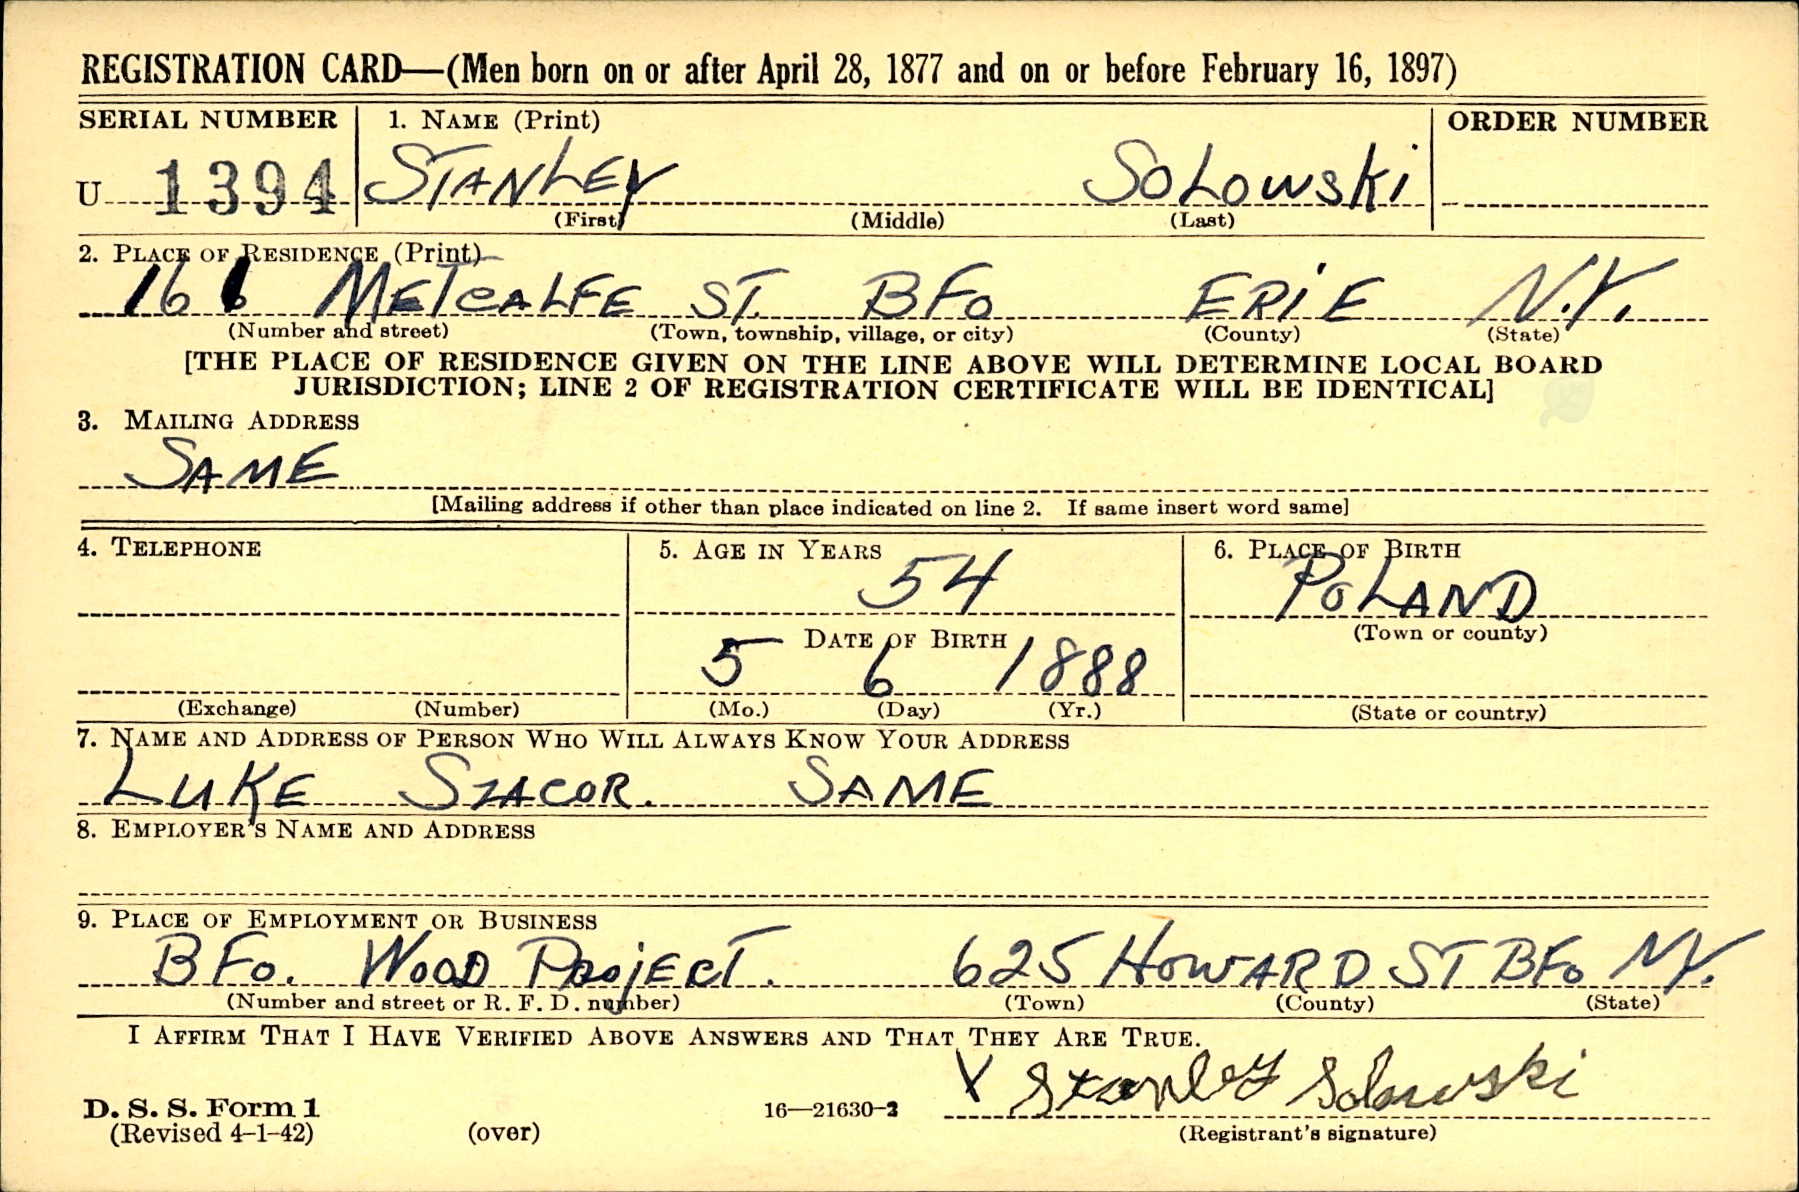 REGISTRATION CARD—(Men born on or after April 28, 1877 and on or before February 16, 1897)
SERIAL NUMBER 1. NAME (Print) ORDER NUMBER
U 1394 STANLEY SOLOWSKI
(First) (Middle) (Last)
2. PLACE OF RESIDENCE (Print)
METCALFE ST. BFO ERIE N.Y.
(Number and street) (Town, township, village, or city) (County) (State)
[THE PLACE OF RESIDENCE GIVEN ON THE LINE ABOVE WILL DETERMINE LOCAL BOARD
JURISDICTION; LINE 2 OF REGISTRATION CERTIFICATE WILL BE IDENTICAL]
3. MAILING ADDRESS
SAME
[Mailing address if other than place indicated on line 2. If same insert word same]
4. TELEPHONE 5. AGE IN YEARS 6. PLACE OF BIRTH
54 POLAND
(Town or county)
DATE OF BIRTH
5 6 1888
(Exchange) (Number) (Mo.) (Day) (Yr.) (State or country)
7. NAME AND ADDRESS OF PERSON WHO WILL ALWAYS KNOW YOUR ADDRESS
LUKE SZACOR. SAME
8. EMPLOYER'S NAME AND ADDRESS
9. PLACE OF EMPLOYMENT OR BUSINESS
BFO. WOOD PROJECT. 625 HOWARD ST BFO NY.
(Number and street or R. F. D. number) (Town) (County) (State)
I AFFIRM THAT I HAVE VERIFIED ABOVE ANSWERS AND THAT THEY ARE TRUE.
X Stanley Solowski
D. S. S. Form 1 16—21630-2
(Revised 4-1-42) (over) (Registrant's signature)